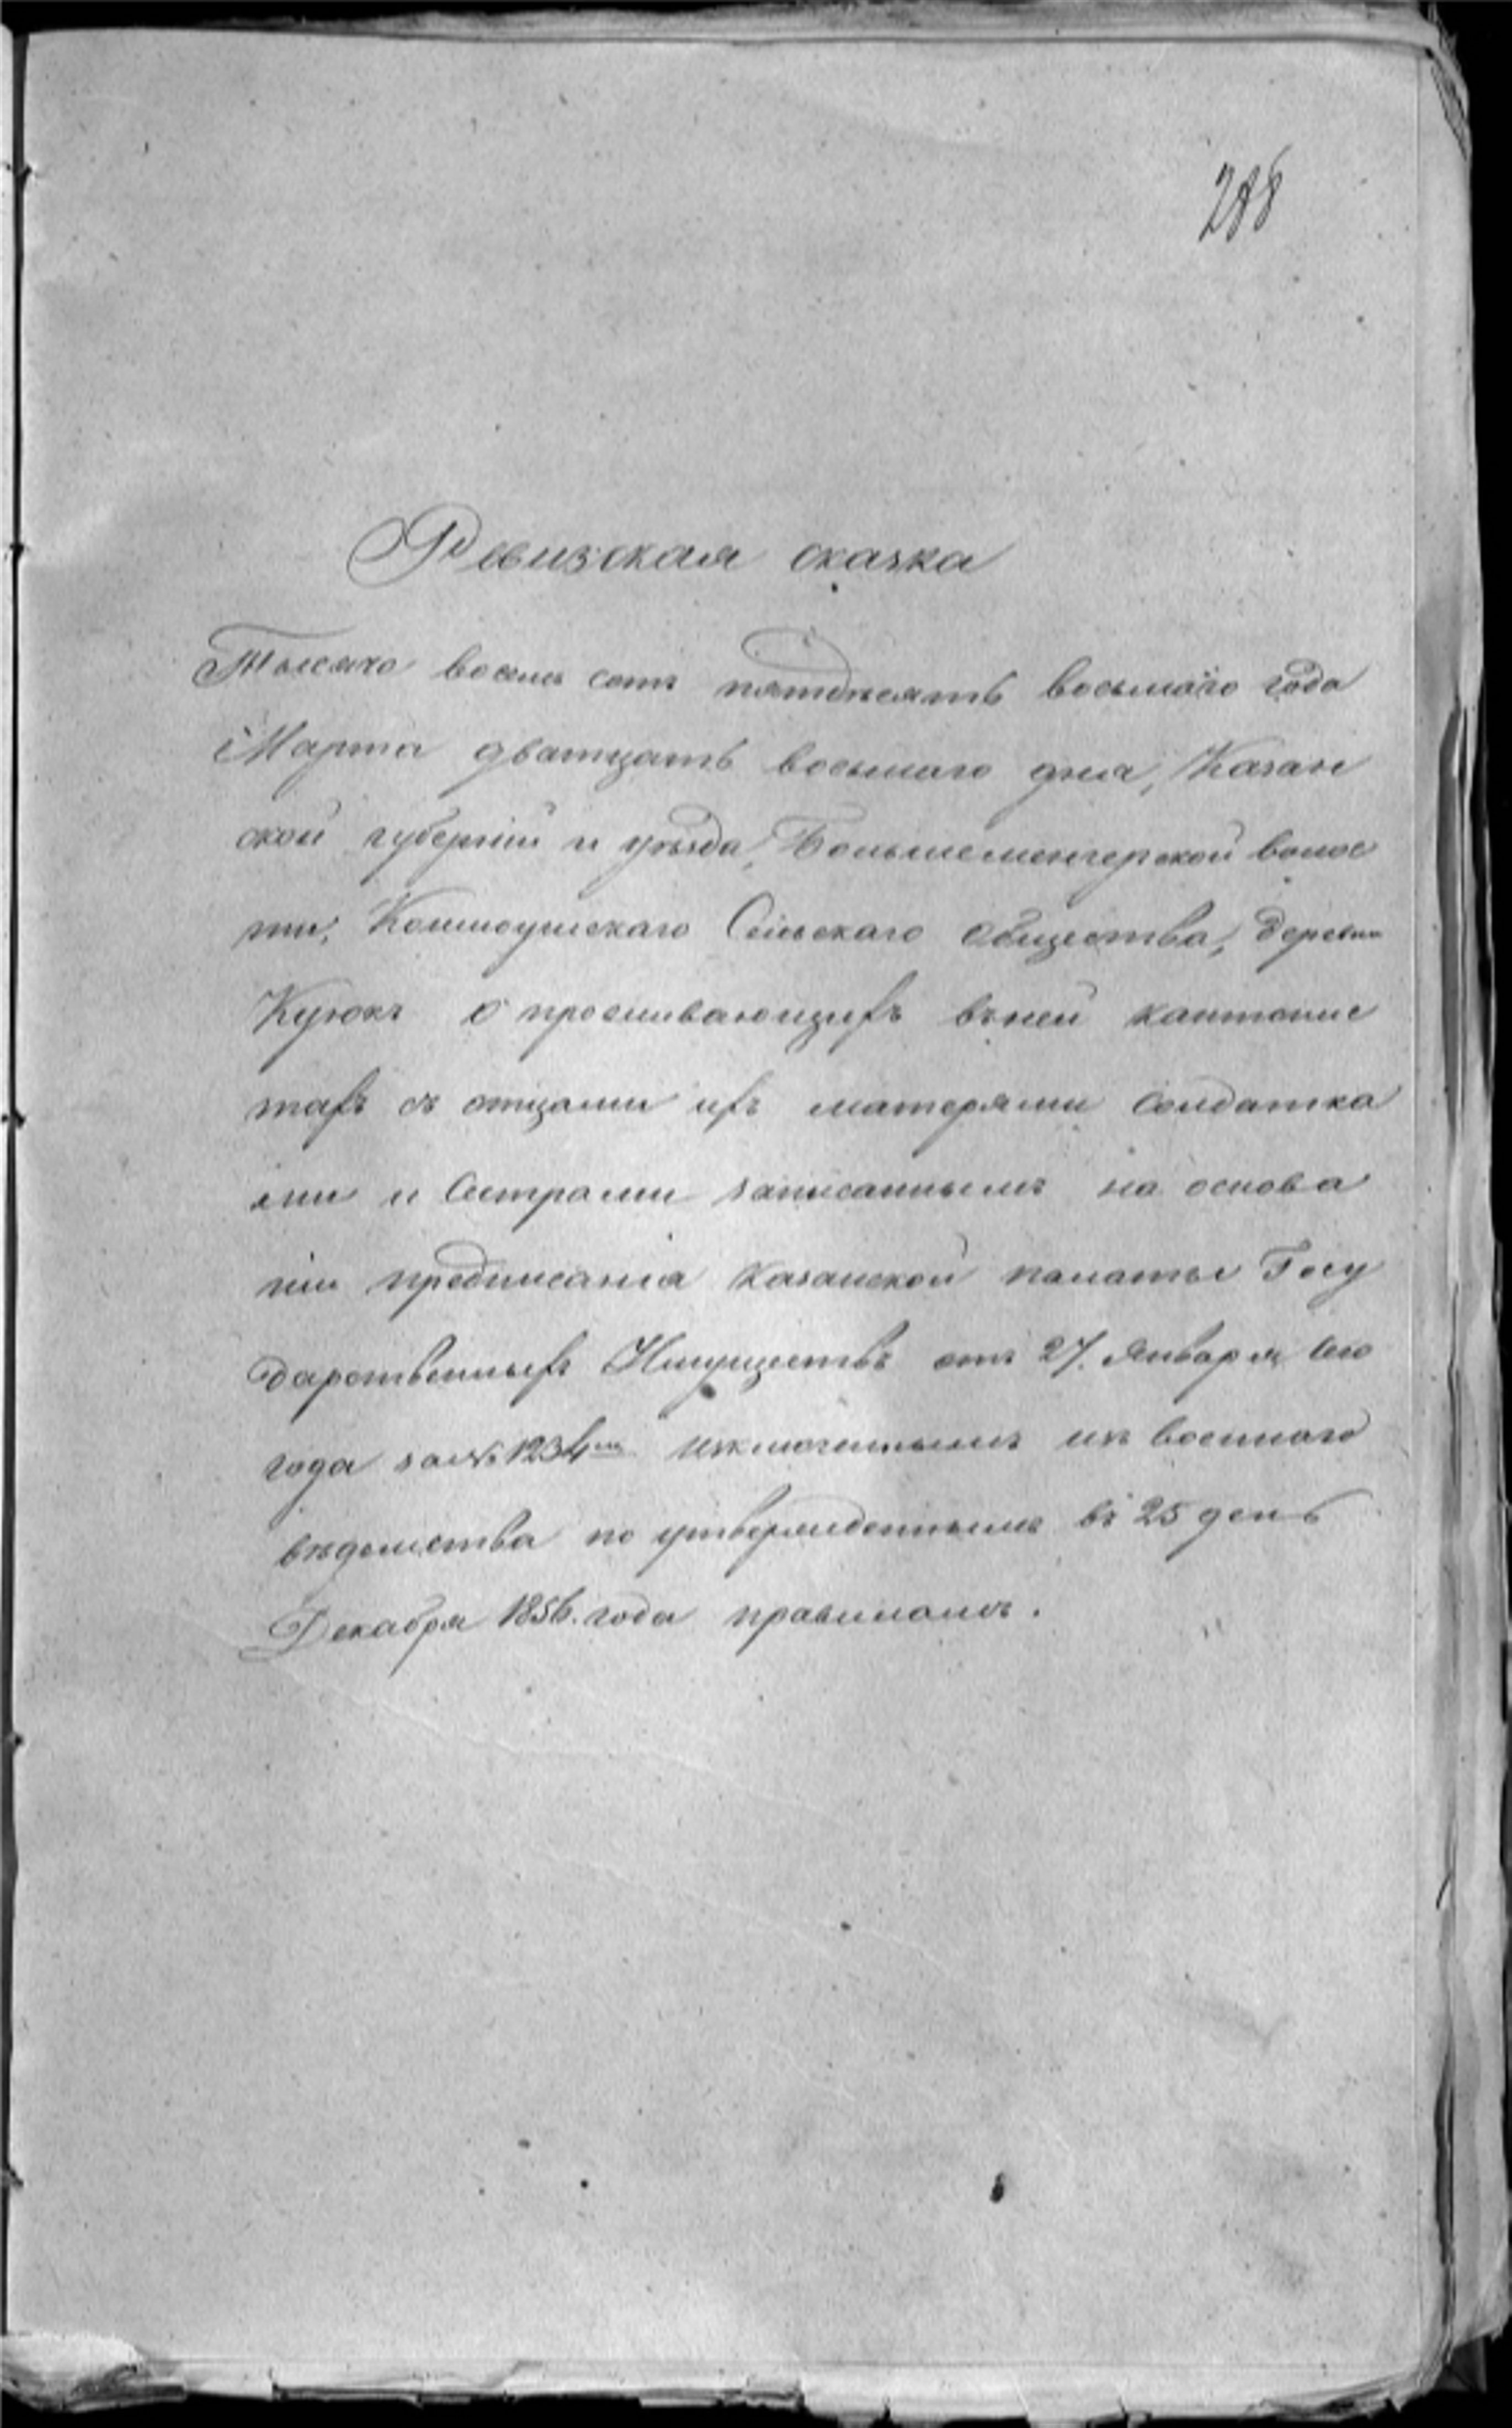 288
Ревизская сказка
Тысяча восемь сотъ пятдесятъ восьмаго года
Марта дватцать восьмаго дня, Казан
ской губерніи и уѣзда, Большеменгерской волос
ти, Сельскаго Общества, деревни
Куюкъ о проживающихъ въ ней кантонис
тахъ съ отцами ихъ матерями солдатка
ми и Сестрами записаннымъ на основа
ніи предписанія Казанской палаты Госу
дарственныхъ Имуществъ отъ 27. Января сего
года за № 1234мъ изключеннымъ изъ военнаго
вѣдомства по утвержденнымъ въ 25 день
Декабря 1856. года правиламъ.